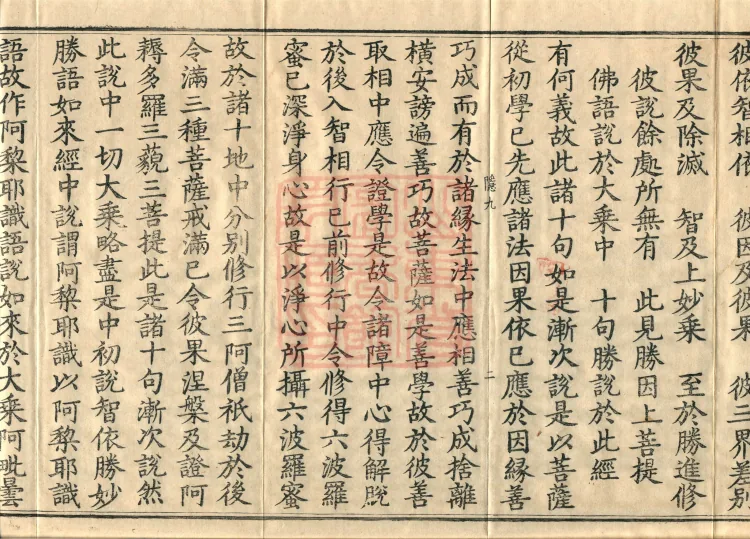 彼依智相依　彼因及彼果　彼三界差別
彼果及除滅　智及上妙乘　至於勝進修
彼說餘處所無有　此見勝因上菩提
佛語說於大乘中　十句勝說於此經
有何義故此諸十句如是漸次說是以菩薩
從初學已先應諸法因果依已應於因緣善
隱九　二
巧成而有於諸緣生法中應相善巧成捨離
橫安謗遍善巧故菩薩如是善學故於彼善
取相中應令證學是故令諸障中心得解脫
於後入智相行已前修行中令修得六波羅
蜜已深淨身心故是以淨心所攝六波羅蜜
故於諸十地中分別修行三阿僧祇劫於後
令滿三種菩薩戒滿已令彼果涅槃及證阿
耨多羅三藐三菩提此是諸十句漸次說然
此說中一切大乘略盡是中初說智依勝妙
勝語如來經中說謂阿黎耶識以阿黎耶識
語故作阿黎耶識語說如來於大乘阿毗曇